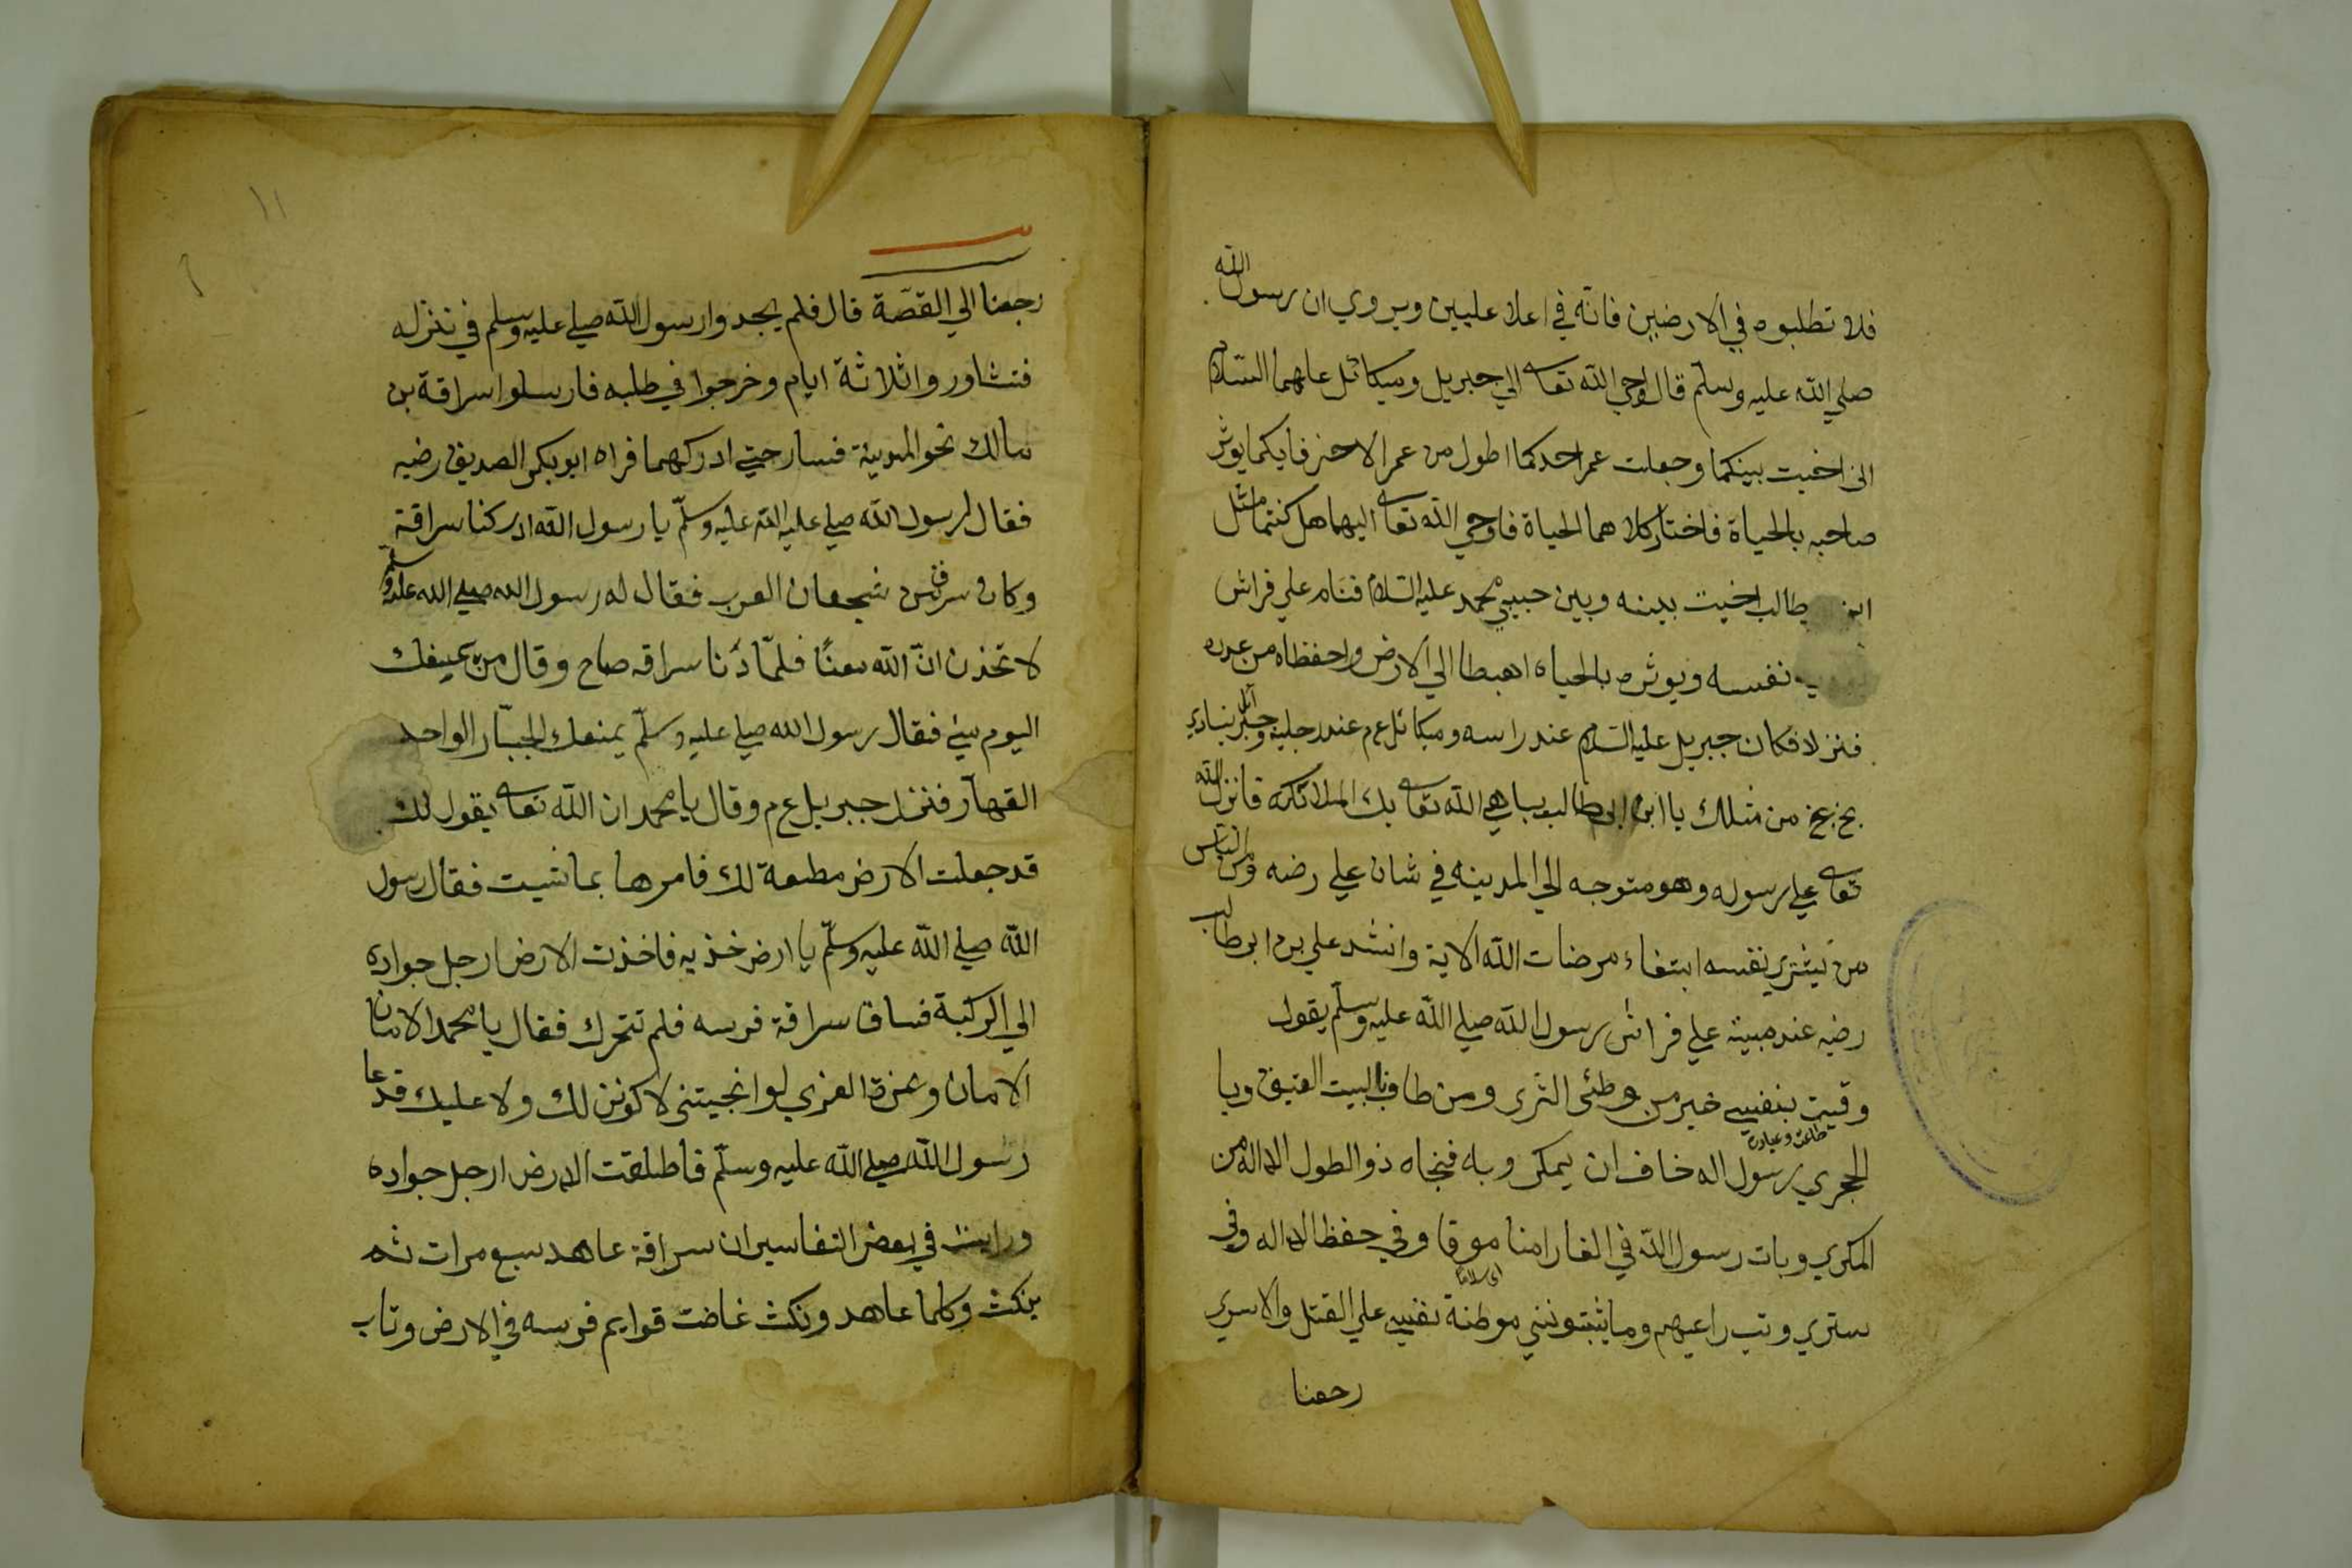 فلا تطلبوه في الارضين فانه في اعلا عليين ويروي ان رسول الله
صلي الله عليه وسلم قال اوحي الله تعا الي جبريل وميكائل عليهما السلام
اني اخيت بينكما وجعلت عمر احدكما اطول من عمر الاخر فايكما يوثر
صاحبه بالحياة فاختار كلا هما الحياة فاوحي الله تعا اليهما هل كنتما مثل
ابن طالب اخيت بينه وبين حبيبي محمد عليه السلام فنام علي فراش
نفسه ويوثره بالحياه اهبطا الي الارض واحفظاه من عدوه
فنزلا فكان جبريل عليه السلام عند راسه وميكائل ع م عند رجليه وجبرائل ينادي
بخ بخ من مثلك يا ابن ابي طالب يباهي الله تعا بك الملائكه فانزل الله
تعا علي رسوله وهو متوجه الي المدينه في شان علي رضه ومن الناس
من يشتري نفسه ابتغاء مرضات الله الاية وانشد علي بن ابو طالب
رضيه عند مبيته علي فراش رسول الله صلي الله عليه وسلم يقول
وقيت بنفسي خير من وطئ الثري ومن طاف بالبيت العتيق وبا
طاعة وعبادة
الحجري رسول اله خاف ان يمكر وبه فنجاه ذو الطول الاله من
المكري وبات رسول الله في الغار امنا موقا وفي حفظ الاله وفي
ستري وبت راعيهم وما يثبتونني موطنة نفسي علي القتل والاسري
رجعنا
١١
رجعنا الي القصة قال فلم يجدوا رسول الله صلي عليه وسلم في نزله
فتشاور واثلاثة ايام وخرجوا في طلبه فارسلوا سراقة بن
مالك نحو المدينة فسار حتي ادركهما فراه ابو بكر الصديق رضيه
فقال لرسول الله صلي عليه الله عليه وسلم يا رسول الله ادركنا سراقة
وكان من شجعان العرب فقال له رسول الله صلي الله عليه وسلم
لا تحذن ان الله معنا فلما دنا سراقه صاح وقال من يمنعك
اليوم مني فقال رسول الله صلي عليه وسلم يمنعك الجبار الواحد
القهار فنزل جبريل ع م وقال يا محمد ان الله تعا يقول لك
قد جعلت الارض مطيعة لك فامرها بما شيت فقال رسول
الله صلي الله عليه وسلم يا ارض خذيه فاخذت الارض ارجل جواده
الي الركبة فساق سراقة فرسه فلم تتحرك فقال يا محمد الامان
الامان وعزة العزي لو انجيتني لاكونن لك ولا عليك فدعا
رسول الله صلي الله عليه وسلم فاطلقت الارض ارجل جواده
ورايت في بعض التفاسير ان سراقة عاهد سبع مرات ثم
ينكث وكلما عاهد ونكث غاضت قوايم فرسه في الارض وتاب